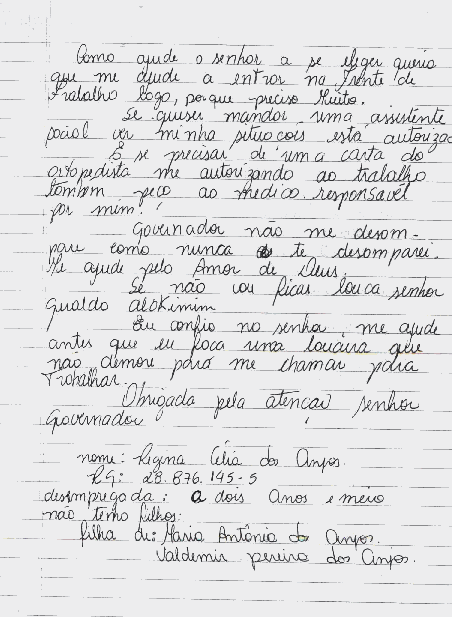 Como ajude o senhor a se eleger queria
que me ajude a entrar na Frente de
Trabalho logo, porque preciso Muito.
Se quiser mandar uma assistente
social ver minha situacois está autorizad
E se precisar de uma carta do
ortopedista me autorizando ao trabalho
tambem peço ao medico responsavel
por mim!
Governador não me desom-
pare como nunca te desomparei.
Me ajude pelo Amor de Deus.
Se não vou ficar louca senhor
Gualdo alokimim
Eu confio no senhor, me ajude
antes que eu faca uma loucura que
não demore para me chamar para
Trabalhar.
Obrigada pela atencao senhor
Governador!
nome: Regina Célia dos Anjos.
RG: 28.876.145-5
desimpregada: a dois anos e meio
não tenho filhos:
filha de: Maria Antônia do Anjos.
Valdemir pereira dos Anjos.